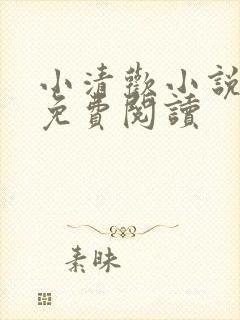 小清歡小說
免費閱讀
素昧